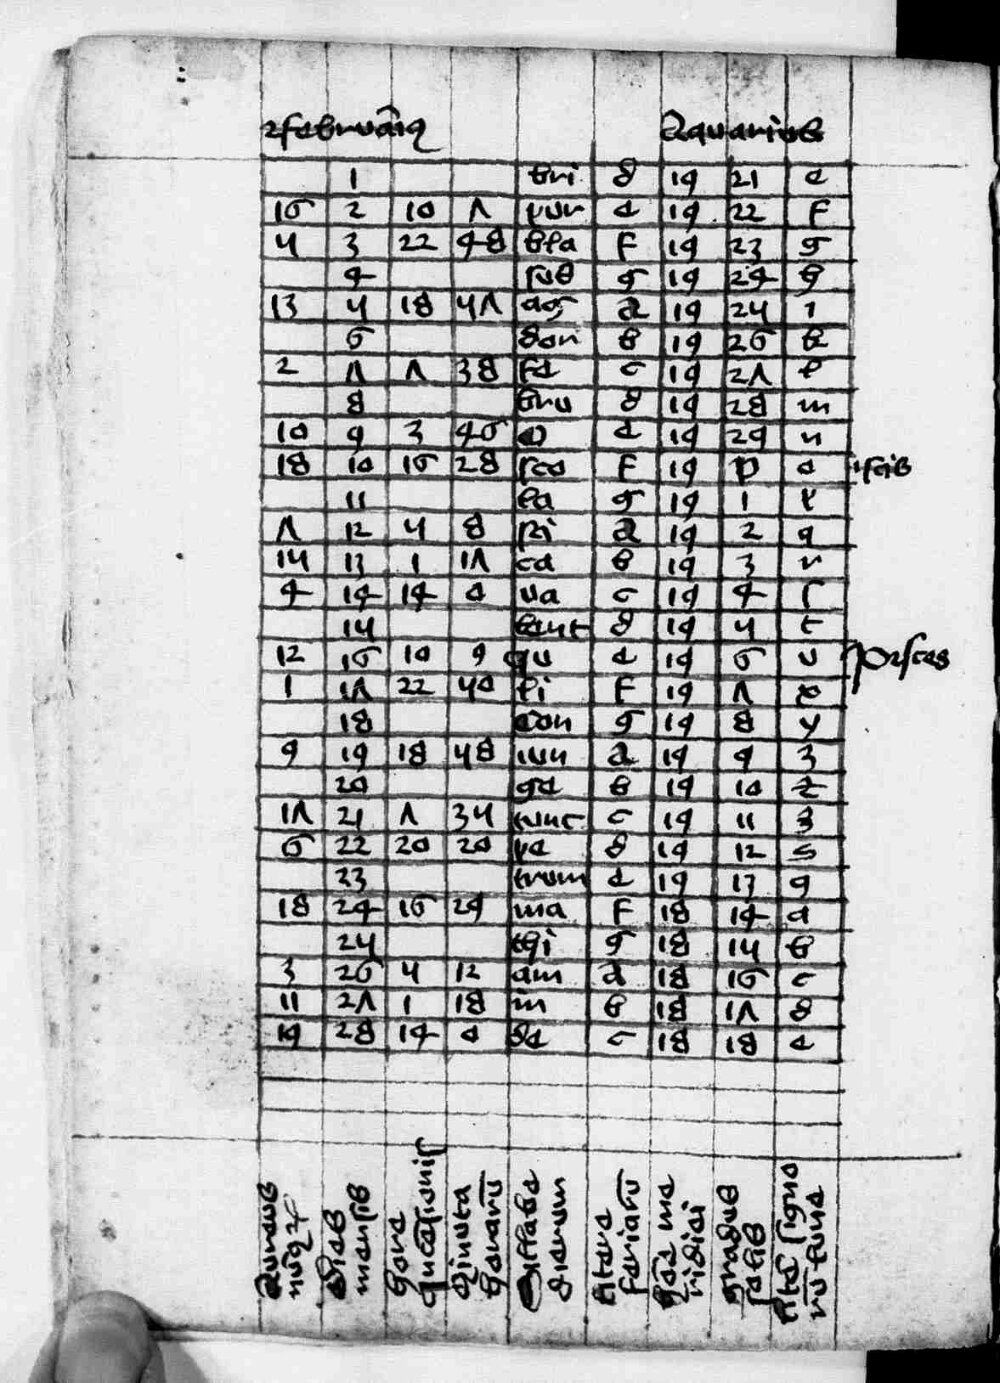 februarius Aquarius
1 bri d 19 21 e
16 2 10 7 pur e 19 22 f
5 3 22 48 bla f 19 23 g
4 sus g 19 24 h
13 5 18 57 ag a 19 25 i
6 dor b 19 26 k
2 7 7 38 fe c 19 27 l
8 bru d 19 28 m
10 9 3 46 a e 19 29 n
18 10 16 28 sco f 19 p o iscis
11 la g 19 1 p
7 12 5 8 a 19 2 q
15 13 1 17 ca b 19 3 r
4 14 14 0 va c 19 4 s
15 lent d 19 5 t
12 16 10 9 iu e 19 6 v pisces
1 17 22 50 li f 19 7 x
18 con g 19 8 y
9 19 18 58 iun a 19 9 z
20 ge b 19 10
17 21 7 35 tunc c 19 11
6 22 20 20 pe d 19 12
23 trum e 19 13 9
18 24 16 29 ma f 18 14 a
25 thi g 18 15 b
3 26 5 12 am a 18 16 c
11 27 1 18 in b 18 17 d
19 28 14 0 de c 18 18 e
Aureus
Dies mensis
hora
Minuta horarum
Sillabe dierum
litera feriarum
hore meridiei
gradus solis
signo lune